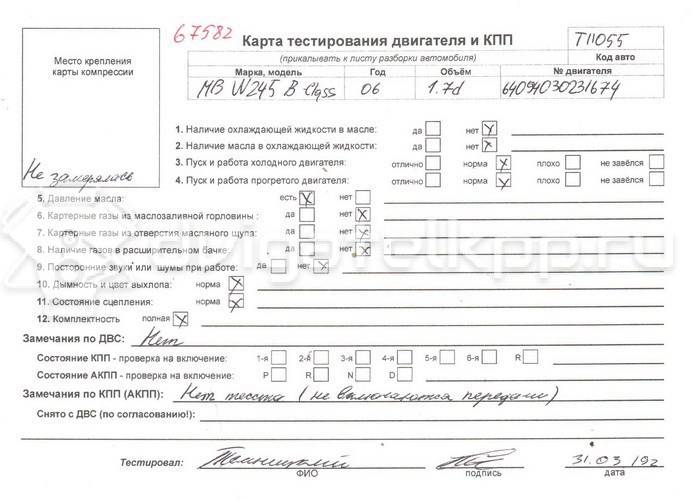 67582
Карта тестирования двигателя и КПП
T11055
Место крепления
карты компрессии
(прикалывать к листу разборки автомобиля)
Код авто
Марка, модель Год Объём № двигателя
MB W245 B Class 06 1.7d 64094030231674
1. Наличие охлаждающей жидкости в масле: да нет
2. Наличие масла в охлаждающей жидкости: да нет
3. Пуск и работа холодного двигателя: отлично норма плохо не завёлся
Не замерялась
4. Пуск и работа прогретого двигателя: отлично норма плохо не завёлся
5. Давление масла: есть нет
6. Картерные газы из маслозаливной горловины : да нет
7. Картерные газы из отверстия масляного щупа: да нет
8. Наличие газов в расширительном бачке: да нет
9. Посторонние звуки или шумы при работе: да нет
10. Дымность и цвет выхлопа: норма
11. Состояние сцепления: норма
12. Комплектность полная
Замечания по ДВС: Нет
Состояние КПП - проверка на включение: 1-я 2-я 3-я 4-я 5-я 6-я R
Состояние АКПП - проверка на включение: P R N D
Замечания по КПП (АКПП): Нет тестта (не включаются передачи)
Снято с ДВС (по согласованию!):
Тестировал: 31.03.19г
ФИО подпись дата
dvigatelkpp.ru